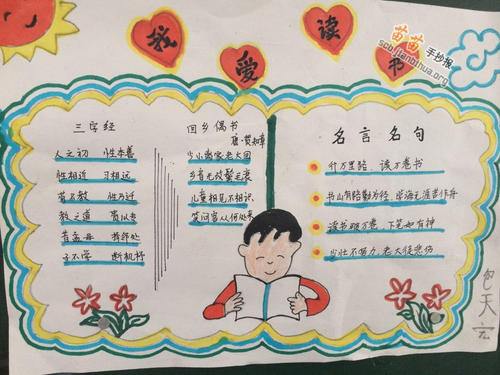 我爱读书
苗苗手抄报
scb.jianbihua.org
三字经
人之初 性本善
性相近 习相远
苟不教 性乃迁
教之道 贵以专
昔孟母 择邻处
子不学 断机杼
回乡偶书
唐·贺知章
少小离家老大回
乡音无改鬓毛衰
儿童相见不相识
笑问客从何处来
名言名句
行万里路,读万卷书
书山有路勤为径,学海无涯苦作舟
读书破万卷,下笔如有神
少壮不努力,老大徒悲伤
包天